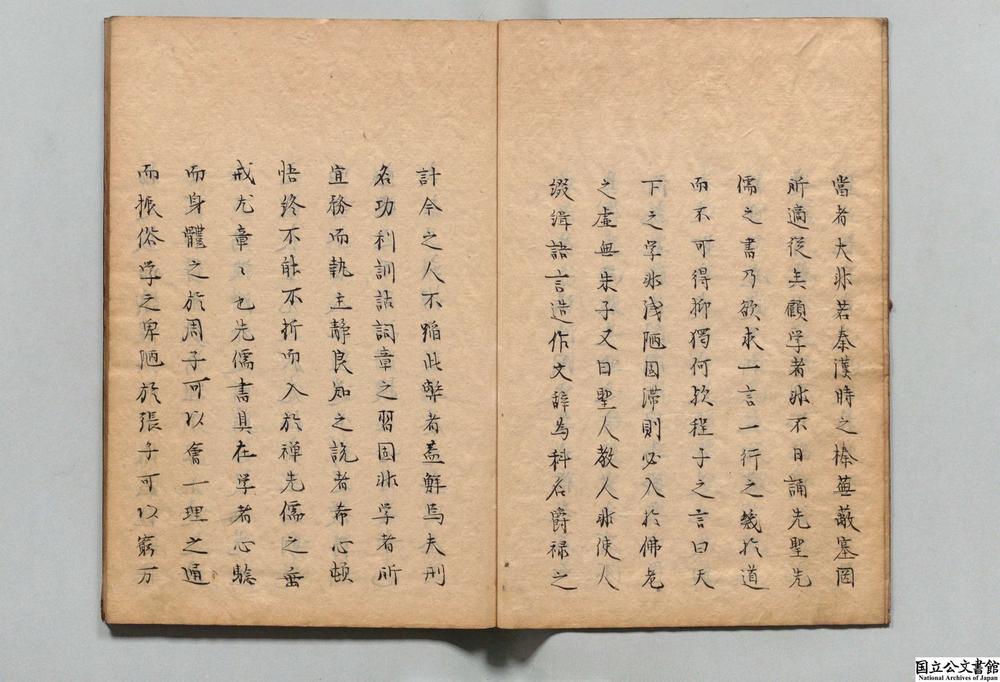 當者大非若秦漢時之榛蕪蔽塞罔
所適従矣顧学者非不日誦先聖先
儒之書乃欲求一言一行之幾於道
而不可得抑獨何欤程子之言曰天
下之学非浅陋固滞則必入於佛老
之虚無朱子又曰聖人教人非使人
綴緝語言造作文辞為科名爵禄之
計今之人不蹈此弊者盖鮮焉夫刑
名功利訓詁詞章之習固非学者所
宜務而執主静良知之説者希心頓
悟終不能不折而入於禅先儒之垂
戒尤章〻也先儒書具在学者心驗
而身體之於周子可以會一理之通
而振俗学之卑陋於張子可以窮万
国立公文書館
National Archives of Japan